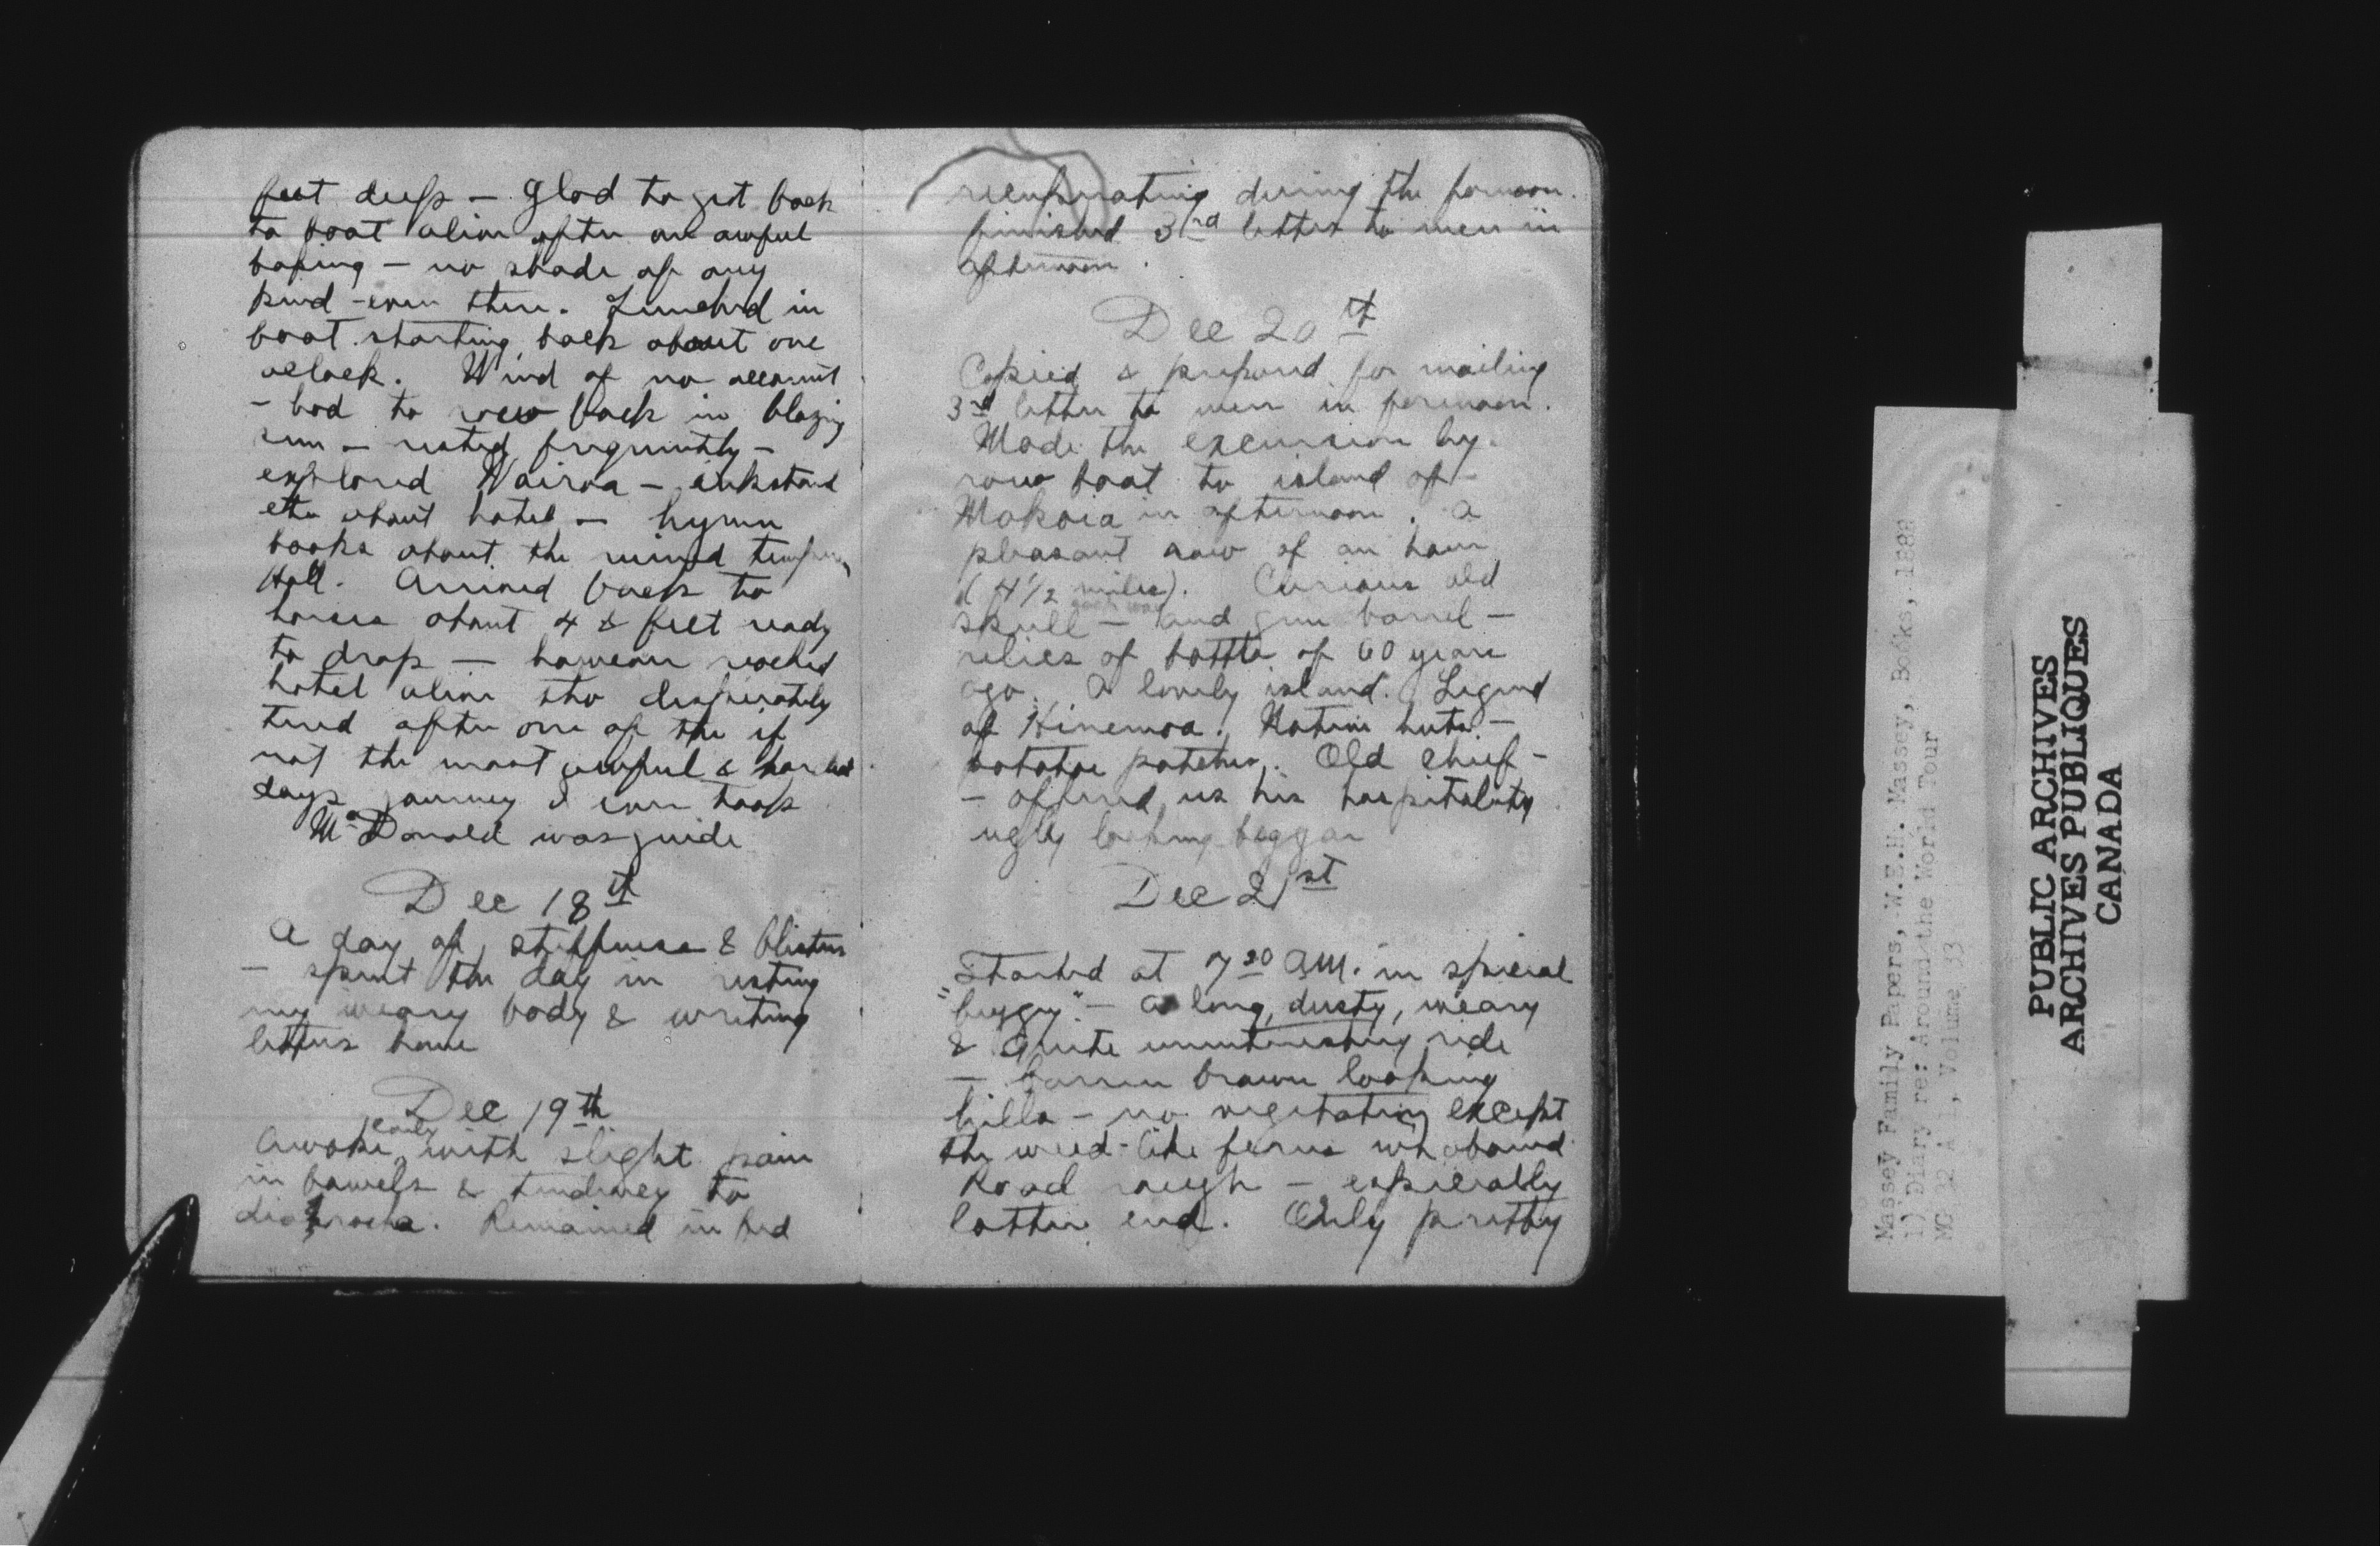 feet deep — Glad to get back
to boat alive after an awful
baking — no shade of any
kind - even there. Lunched in
boat starting back about one
oclock. Wind of no account
- had to row back in blazing
sun — rested frequently —
explored Wairoa — inkstand
etc about hotel — hymn
books about the ruined temperance
Hall. Arrived back to
horses about 4 & felt ready
to drop — however reached
hotel alive tho desperately
tired after one of the if
not the most awful & hardest
days journey I ever took
McDonald was guide
Dec 18th
A day of stiffness & blisters
— spent the day in resting
my weary body & writing
letters home
Dec 19th
Awoke early with slight pain
in bowels & tendency to
diarrhoea. Remained in bed
recuperating during the forenoon.
finished 3rd letter to men in
afternoon.
Dec 20th
Copied & prepared for mailing
3rd letter to men in forenoon.
Made the excursion by
row boat to island of
Mokoia in afternoon. A
pleasant row of an hour
(4 1/2 miles each way). Curious old
skull — and gun barrel —
relics of battle of 60 years
ago. A lovely island. Legend
of Hinemoa. Native huts —
potatoe patches. Old chief -
- offered us his hospitality
ugly looking beggar
Dec 21st
Started at 7 20 AM. in special
"buggy" — a long, dusty, weary
& quite uninteresting ride
— barren brown looking
hills — no vegetation except
the weed-like ferns wh abound
Road rough — especially
latter end. Only pretty
Massey Family Papers, W.E.H. Massey, Books, 1888
1) Diary re: Around the World Tour
MG 32 A 1, Volume 33
PUBLIC ARCHIVES
ARCHIVES PUBLIQUES
CANADA